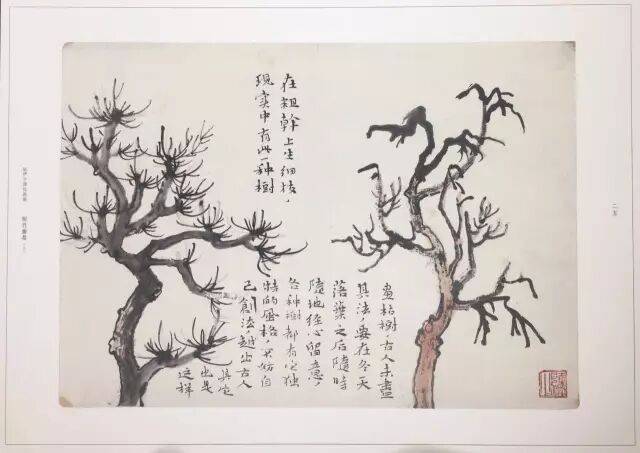 在粗幹上生细枝，
现实中有此一种樹
画枯樹古人未盡
其法，要在冬天
落葉之后隨時
隨地经心留意，
各种樹都有它独
特的風格，不妨自
己創法，越出古人
其它
也是
这样
二五